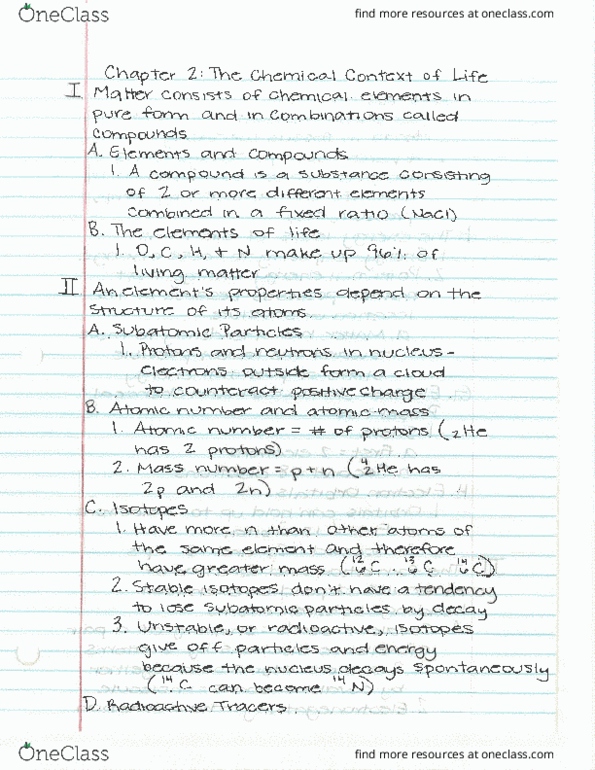 OneClass
find more resources at oneclass.com
Chapter 2: The Chemical Context of Life
I Matter consists of chemical elements in
pure form and in combinations called
compounds
A. Elements and compounds
1. A compound is a substance consisting
of 2 or more different elements
combined in a fixed ratio (NaCl)
B. The elements of life
1. O, C, H, + N make up 96% of
living matter
II An element's properties depend on the
structure of its atoms.
A. Subatomic Particles
1. Protons and neutrons in nucleus -
Electrons outside form a cloud
to counteract positive charge
B. Atomic number and atomic mass
1. Atomic number = # of protons (₂He
has 2 protons)
2. Mass number = p + n (⁴₂He has
2p and 2n)
C. Isotopes
1. Have more n than other atoms of
the same element and therefore
have greater mass (¹²₆C ¹³₆C ¹⁴₆C)
2. Stable isotopes don't have a tendency
to lose subatomic particles by decay
3. Unstable, or radioactive, isotopes
give off particles and energy
because the nucleus decays spontaneously
(¹⁴C can become ¹⁴N)
D. Radioactive Tracers.
OneClass
find more resources at oneclass.com